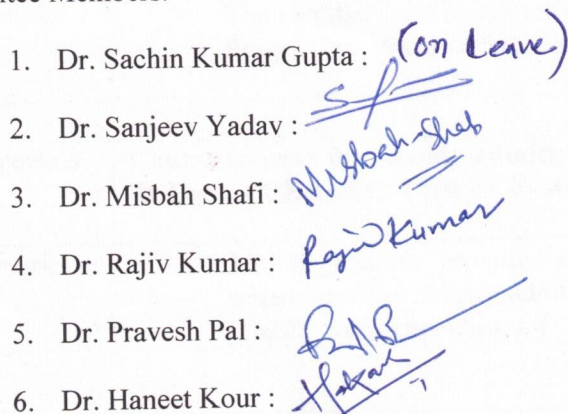 1. Dr. Sachin Kumar Gupta : (on Leave)
2. Dr. Sanjeev Yadav :
3. Dr. Misbah Shafi : Misbah-Shafi
4. Dr. Rajiv Kumar : Rajiv Kumar
5. Dr. Pravesh Pal :
6. Dr. Haneet Kour :